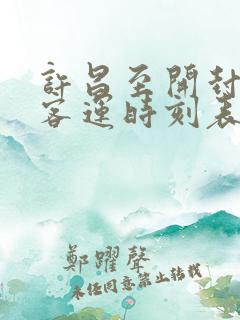 許昌至開封
客運時刻表
鄭躍聲
未经同意禁止转载